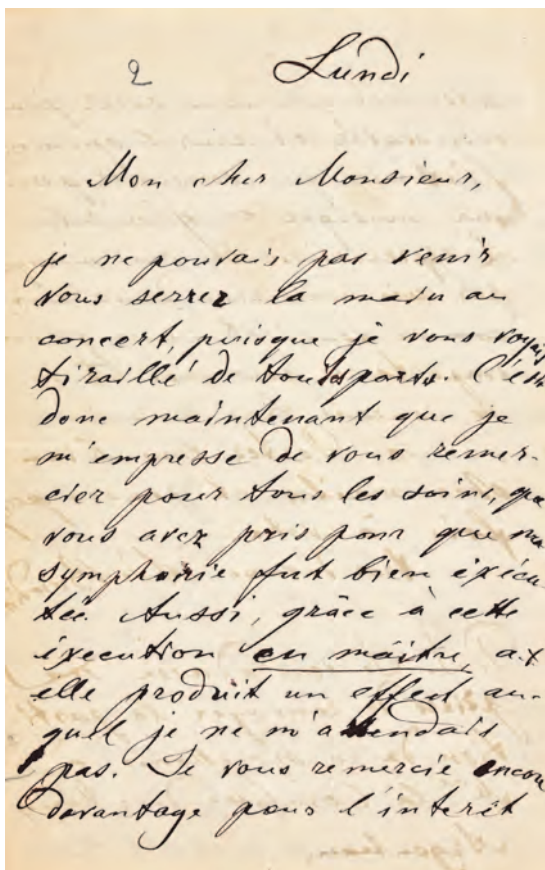 2 Lundi
Mon cher Monsieur,
je ne pouvais pas venir
vous serrer la main au
concert, puisque je vous voyais
tiraillé de toutes parts. C'est
donc maintenant que je
m'empresse de vous remer-
cier pour tous les soins, que
vous avez pris pour que ma
symphonie fut bien exécu-
teé. Aussi, grâce à cette
éxecution en maître, a-t
elle produit un effect au-
quel je ne m'attendais
pas. Je vous remercie encore
davantage pour l'interêt